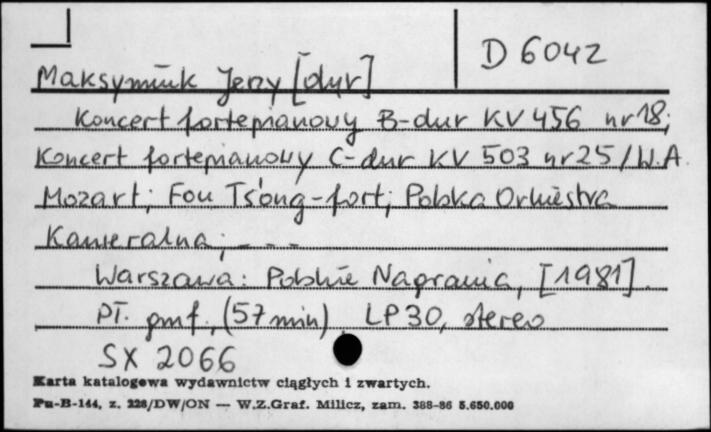 D 6042
Maksymiuk Jerzy [dyr]
Koncert fortepianowy B-dur KV 456 nr 18;
Koncert fortepianowy C-dur KV 503 nr 25 / W.A.
Mozart; Fou Ts'ong - fort; Polska Orkiestra
Kameralna; - - -
Warszawa: Polskie Nagrania, [1981].
Pł. gmf., (57 min) LP 30, stereo
SX 2066
Karta katalogowa wydawnictw ciągłych i zwartych.
Pu-B-144, z. 228/DW/ON — W.Z.Graf. Milicz, zam. 388-86 5.650.000